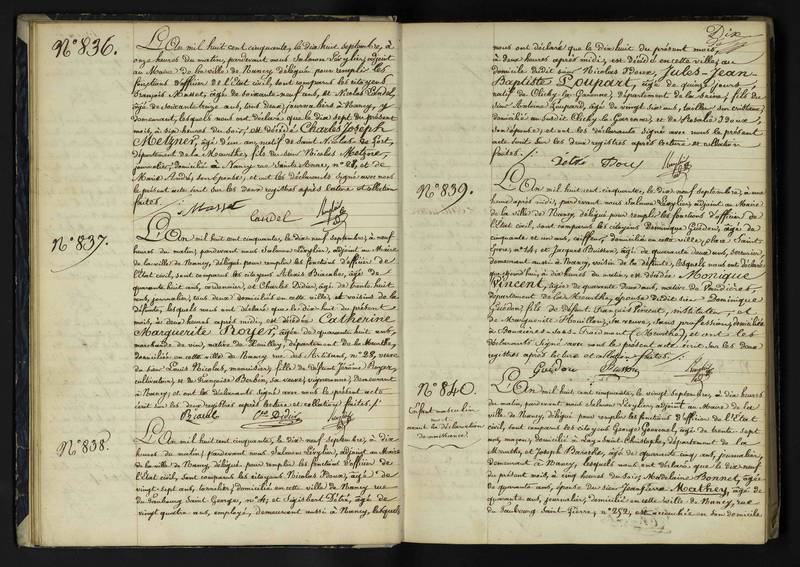 N° 836.
L'An mil huit cent cinquante, le dix huit septembre, à
onze heures du matin, pardevant nous Salomon Lévylier, adjoint
au Maire de la ville de Nancy délégué pour remplir les
fonctions d'officier de l'Etat civil, sont comparus les citoyens
François Masset, âgé de soixante neuf ans, et Nicolas
âgé de soixante ans, tous deux journaliers à Nancy, y
demeurant, lesquels nous ont déclaré que le dix sept du présent
mois, à six heures du soir, est décédé Charles Joseph
Metzner, âgé d'un an, natif de Saint Nicolas de Port,
département de la Meurthe, fils du sieur Nicolas Metzner,
journalier, domicilié à Nancy rue Sainte Anne, n° 28, et de
Marie André, son épouse; et ont les déclarants signé avec nous
le présent acte écrit sur les deux registres après lecture et collation
faites.
Masset
N° 837.
L'An mil huit cent cinquante, le dix neuf septembre, à neuf
heures du matin, pardevant nous Salomon Lévylier, adjoint au Maire
de la ville de Nancy, délégué pour remplir les fonctions d'officier de
l'Etat civil, sont comparus les citoyens Alexis âgé de
quarante huit ans, cordonnier, et Charles Didier, âgé de trente huit
ans, journalier, tous deux domiciliés en cette ville, et voisins de la
défunte, lesquels nous ont déclaré que le dix huit du présent
mois, à deux heures après midi, est décédée Catherine
Marguerite Royer, âgée de quarante huit ans,
marchande de vin, native de département de la Meurthe,
domiciliée en cette ville de Nancy rue des Artisans, n° 28, veuve
du sieur Louis Nicolas, menuisier, fille de défunt Jérôme Royer,
cultivateur, et de Françoise sa veuve, vigneronne, demeurant
à Nancy, et ont les déclarants signé avec nous le présent acte
écrit sur les deux registres après lecture et collation faites.
Ch. Didier
N° 838.
L'An mil huit cent cinquante, le dix neuf septembre, à dix
heures du matin, pardevant nous Salomon Lévylier, adjoint au Maire
de la ville de Nancy, délégué pour remplir les fonctions d'officier de
l'Etat civil, sont comparus les citoyens Nicolas Doux, âgé de
vingt sept ans, domicilié en cette ville de Nancy rue
du faubourg Saint Georges, n° et Sigisbert âgé de
vingt quatre ans, employé, demeurant aussi à Nancy, lesquels
Dix
nous ont déclaré que le dix huit du présent mois,
à deux heures après midi, est décédé en cette ville, au
domicile dudit sieur Nicolas Doux, Jules-Jean
Baptiste Poupart, âgé de quinze jours,
natif de Clichy la Garenne, département de la Seine, fils du
sieur Antoine Poupard, âgé de vingt six ans, tailleur
domicilié audit Clichy la Garenne, et de Rosalie Doux,
son épouse; et ont les déclarants signé avec nous le présent
acte écrit sur les deux registres après lecture et collation
faites.
N° 839.
L'An mil huit cent cinquante, le dix neuf septembre, à une
heure après midi, pardevant nous Salomon Lévylier, adjoint au Maire
de la ville de Nancy délégué pour remplir les fonctions d'officier de
l'Etat civil, sont comparus les citoyens Dominique Guédon, âgé de
cinquante et un ans, domicilié en cette ville, place Saint
n° 14, et Jacques âgé de quarante deux ans, serrurier,
demeurant aussi à Nancy, voisin de la défunte, lesquels nous ont déclaré
qu'aujourd'hui, à dix heures du matin, est décédée Monique
Vincent, âgée de quarante deux ans, native de
département de la Meurthe, épouse dudit sieur Dominique
Guédon; fille de défunt François Vincent, instituteur, et
de Marguerite sa veuve, sans profession, domiciliée
à (Meurthe), et ont les
déclarants signé avec nous le présent acte écrit sur les deux
registres après lecture et collation faites.
Guédon
N° 840.
Enfant masculin
mort avant la déclaration
de naissance.
L'An mil huit cent cinquante, le vingt septembre, à dix heures
du matin, pardevant nous Salomon Lévylier, adjoint au Maire de la
ville de Nancy, délégué pour remplir les fonctions d'officier de l'Etat
civil, sont comparus les citoyens George âgé de trente sept
ans, maçon, domicilié à Lay-Saint-Christophe, département de la
Meurthe, et Joseph âgé de quarante cinq ans, journalier,
demeurant à Nancy, lesquels nous ont déclaré que le dix neuf
du présent mois, à cinq heures du soir, Madelaine Bonnet, âgée
de quarante ans, épouse du sieur Jean Pierre Mathey, âgé de
quarante ans, journalier, domiciliée en cette ville de Nancy, rue
du faubourg Saint-Pierre, n° 252, est accouchée en son domicile